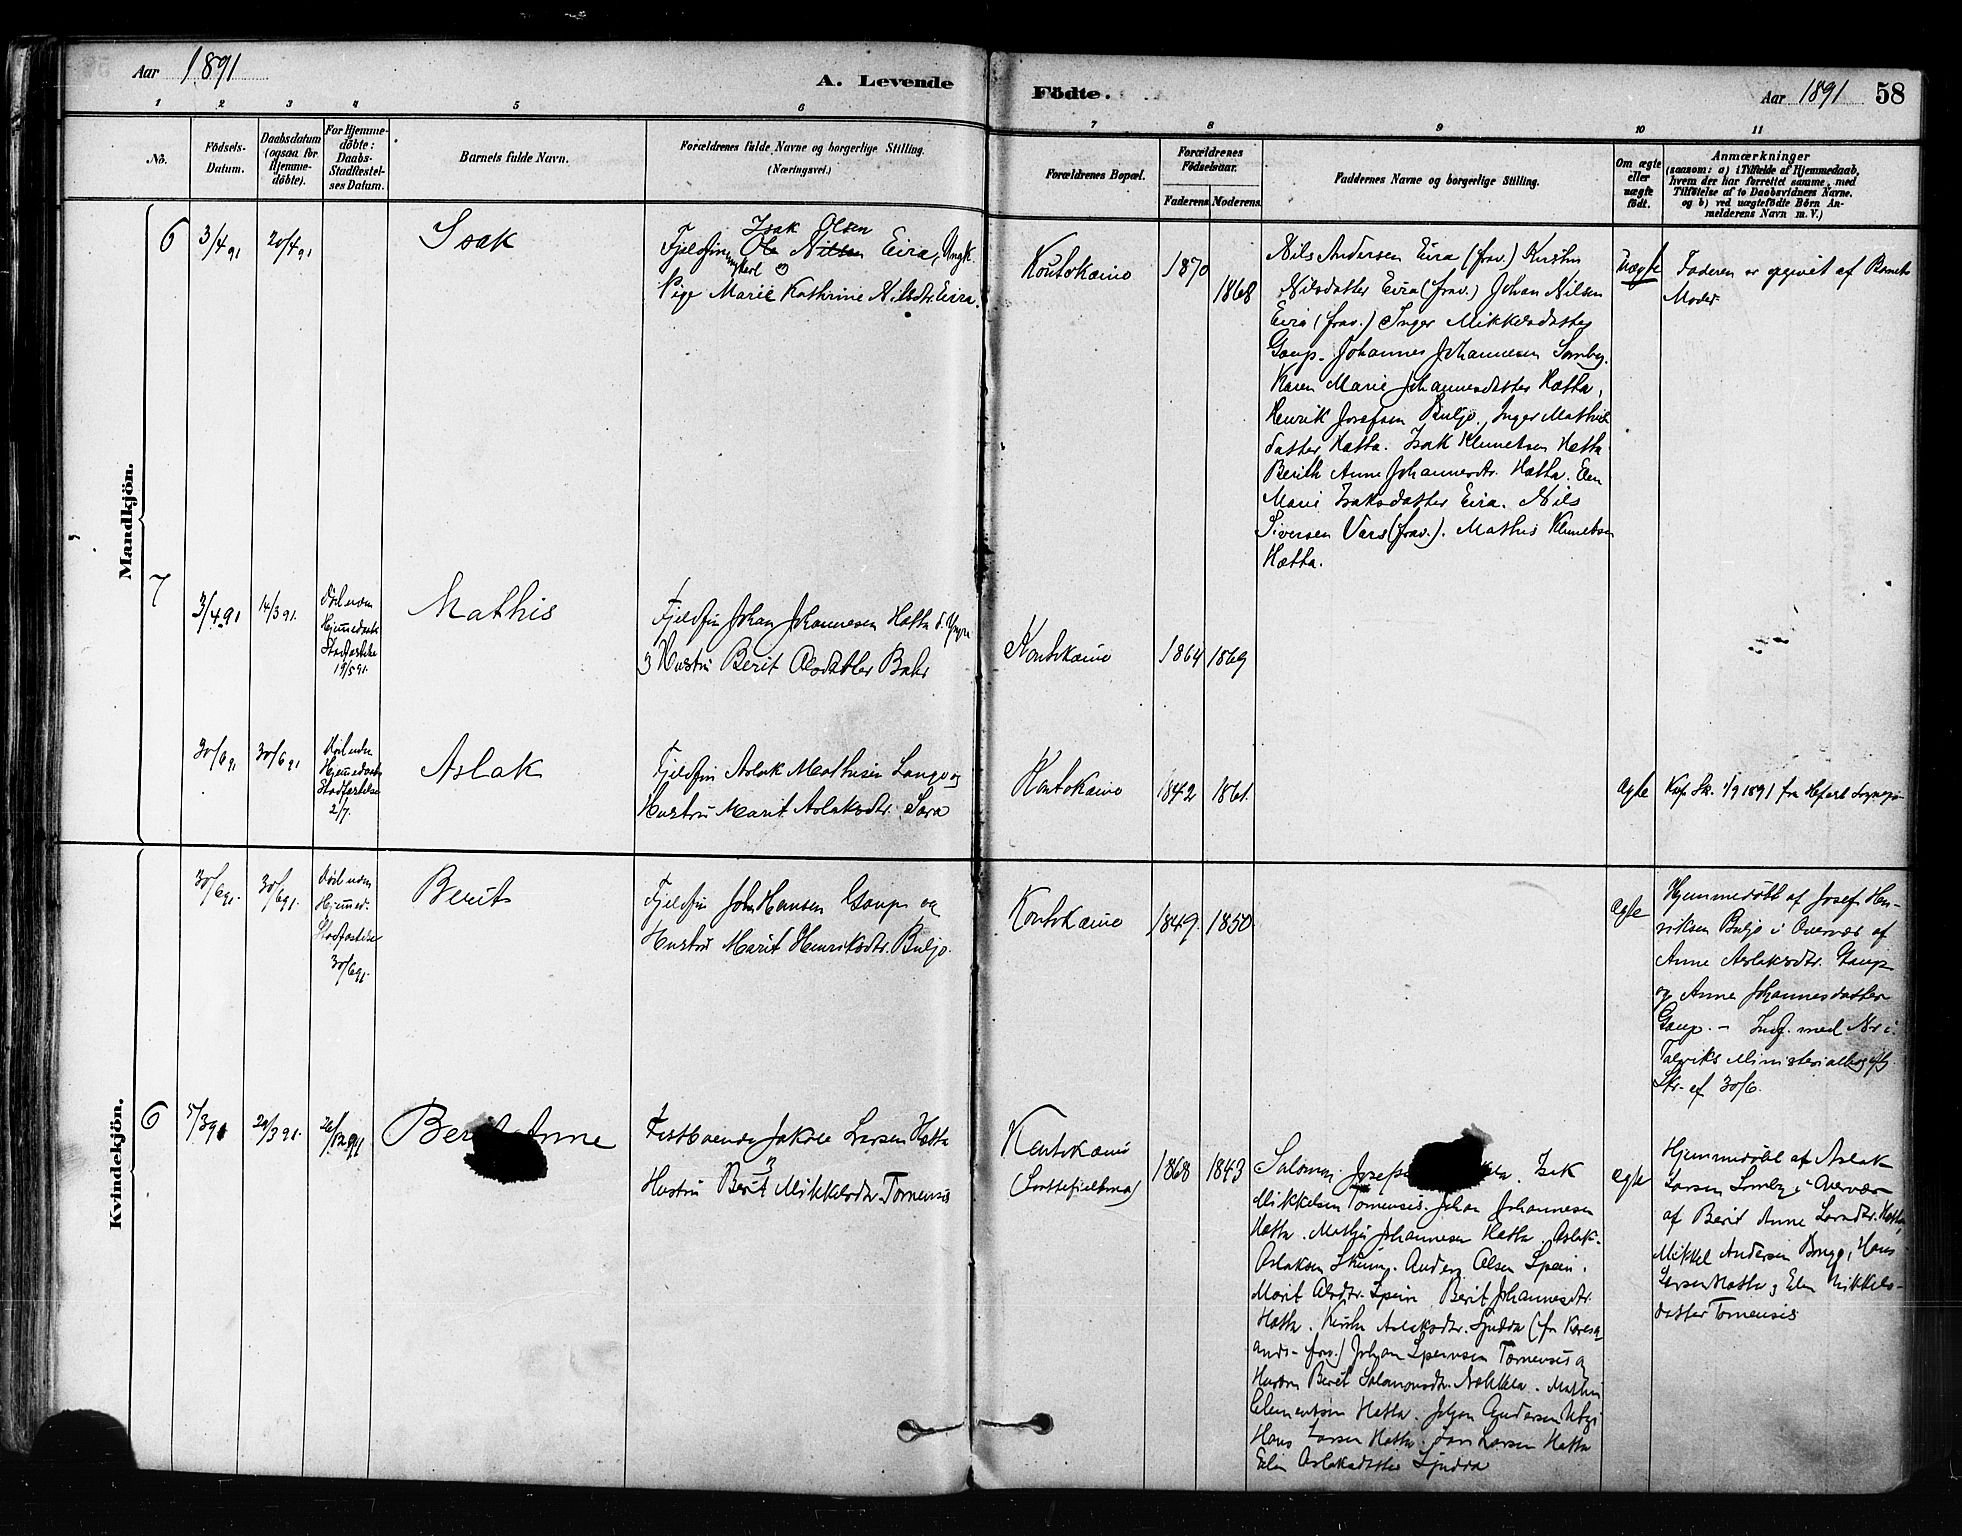 Aar 1891
A. Levende Födte.
Aar 1891 58
1 2 3 4 5 6 7 8 9 10 11
No.
Födsels-Datum.
Daabsdatum (ogsaa for Hjemme-döbte).
For Hjemme-döbte: Daabs-Stadfæstel-ses Datum.
Barnets fulde Navn.
Forældrenes fulde Navne og borgerlige Stilling.
(Næringsvei.)
Forældrenes Bopæl.
Forældrenes Födselsaar.
Faderens Moderens
Faddernes Navne og borgerlige Stilling.
Om ægte eller uægte födt.
Anmærkninger
(saasom: a) i Tilfælde af Hjemmedaab,
hvem der har forrettet samme, med
Tilföielse af to Daabsvidners Navne.
og b) ved uægtefödte Börn An-
melderens Navn m. V.)
Mandkjön.
6 3/4 91 20/4 91 Isak
Isak Olsen
Fjeldfin Ole Nilsen Eira, Ungk.
Pige Marie Kathrine Nilsdtr. Eira.
Koutokæino 1870 1868
Nils Andersen Eira (frav.) Kirsten
Nilsdatter Eira (frav.) Johan Nilsen
Eira (frav.) Inger Mikkelsdatter
Gaup. Johannes Johannesen Somby.
Karen Marie Johannesdatter Hætta,
Henrik Josefsen Buljo. Inger Mathis
datter Hætta. Isak Klemetsen Hætta
Berith Anne Johannesdtr. Hætta. Elen
Marie Isaksdatter Eira. Nils
Siversen Vars (frav.). Mathis Klemetsen
Hætta.
Uægte
Faderen er opgivet af Barnets
Moder
7 3/4 91 14/3 91. Stadfæstelse 19/5 91. Mathis
Fjeldfin Johan Johannesen Hætta d. Yngre
og Hustru Berit Olsdatter Bahr
Koutokæino 1864 1869
30/6 91 30/6 91 Stadfæstelse 2/7. Aslak
Fjeldfin Aslak Mathisen Lango og
Hustru Marit Aslaksdtr. Sara
Koutokæino 1842 1861.
ægte 1/9 1891 fra
Kvindekjön.
30/6 91. 30/6 91. Hjemmed. Stadfæstelse 30/6 91. Berit
Fjeldfin John Hansen Gaup og
Hustru Marit Henriksdtr. Buljo.
Koutokæino 1849. 1850
ægte
Hjemmedöbt af Josef Hen-
riksen Buljo i Overvær af
Anne Aslaksdtr. Gaup
og Anne Johannesdatter
Gaup. – Indf. med Nr i
Talviks Ministerialbog
Skr. af 30/6.
6 5/3 91 Berit Anne
Fastboende Jakob Larsen Hætta
Hustru Berit Mikkelsdtr. Tornensis
Koutokæino 1868 1843
Salomon Josefs Isak
Mikkelsen Tornensis. Johan Johannesen
Hætta. Mathis Johannesen Hætta. Aslak
Aslaksen Skum. Anders Olsen Spein.
Marit Olsdtr. Spein Berit Johannesdtr.
Hætta. Kirsten Aslaksdtr. Sjudda (fra
frav.) Johan Speinsen Tornensis og
Hustru Berit Salomonsdtr. Nækkela. Mathis
Clemetsen Hætta. Johan Andersen Utsi
Hans Larsen Hætta. Lars Larsen Hætta
Elen Aslaksdatter Sjudda
ægte
Hjemmedöbt af Aslak
Larsen Somby i Overvær
af Berit Anne Larsdtr. Hætta,
Mikkel Andersen Bongo, Hans
Larsen Hætta og Elen Mikkels-
datter Tornensis